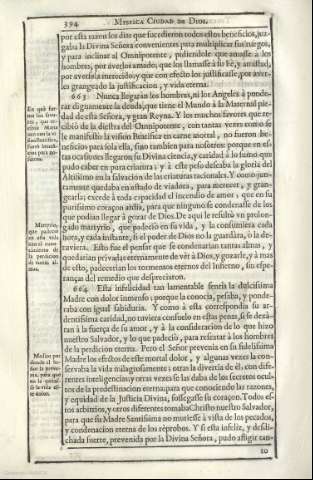 394 MYSTICA CIUDAD DE DIOS.
por esta razon los dias que sucedieron todos estos beneficios, juz-
gaba la Divina Señora convenientes para multiplicar sus ruegos,
y para inclinar al Omnipotente, pidiendole que amasse à los
hombres, por averlos amado; que los llamasse à su Fè, y amistad,
por averlo merecido; y que con efecto los justificasse, por aver-
les grangeado la justificacion, y vida eterna.
663 Nunca llegaràn los hombres, ni los Angeles à ponde-
rar dignamente la deuda, que tiene el Mundo à la Maternal pie-
dad de esta Señora, y gran Reyna. Y los muchos favores que re-
cibiò de la diestra del Omnipotente, con tantas veces como se
le manifestò la vision Beatifica en carne mortal, no fueron be-
neficios para sola ella, sino tambien para nosotros: porque en es-
tas ocasiones llegaron su Divina ciencia, y caridad à lo sumo, que
pudo caber en pura criatura: y à este peso deseaba la gloria del
Altissimo en la salvacion de las criaturas racionales. Y como jun-
tamente quedaba en estado de viadora, para merecer, y gran-
gearla; excede à toda capacidad el incendio de amor, que en su
purissimo coraçon ardia, para que ninguno se condenasse de los
que podian llegar à gozar de Dios. De aqui le resultò un prolon-
gado martyrio, que padeciò en su vida, y la consumiera cada
hora, y cada instante, si el poder de Dios no la guardàra, ò la de-
tuviera. Esto fue el pensar que se condenarian tantas almas, y
quedarian privadas eternamente de vèr à Dios, y gozarle, y à mas
de esto, padecerian los tormentos eternos del Infierno, sin espe-
ranças del remedio que despreciaron.
664 Esta infelicidad tan lamentable sentia la dulcissima
Madre con dolor inmenso; porque la conocia, pesaba, y ponde-
raba con igual sabiduria. Y como à esta correspondia su ar-
dentissima caridad, no tuviera consuelo en estas penas, si se dexà-
ran à la fuerça de su amor, y à la consideracion de lo que hizo
nuestro Salvador, y lo que padeciò, para rescatar à los hombres
de la perdicion eterna. Pero el Señor prevenia en su fidelissima
Madre los efectos de este mortal dolor, y algunas veces la con-
servaba la vida milagrosamente; otras la divertia de èl con dife-
rentes inteligencias; y otras veces se las daba de los secretos ocul-
tos de la predestinacion eterna, para que conociendo las razones,
y equidad de la Justicia Divina, sossegasse su coraçon. Todos es-
tos arbitrios, y otros diferentes tomaba Christo nuestro Salvador,
para que su Madre Santissima no muriesse à vista de los pecados,
y condenacion eterna de los reprobos. Y si esta infeliz, y desdi-
chada suerte, prevenida por la Divina Señora, pudo afligir tan-
to
Martyrio,
que padeciò
en esta vida